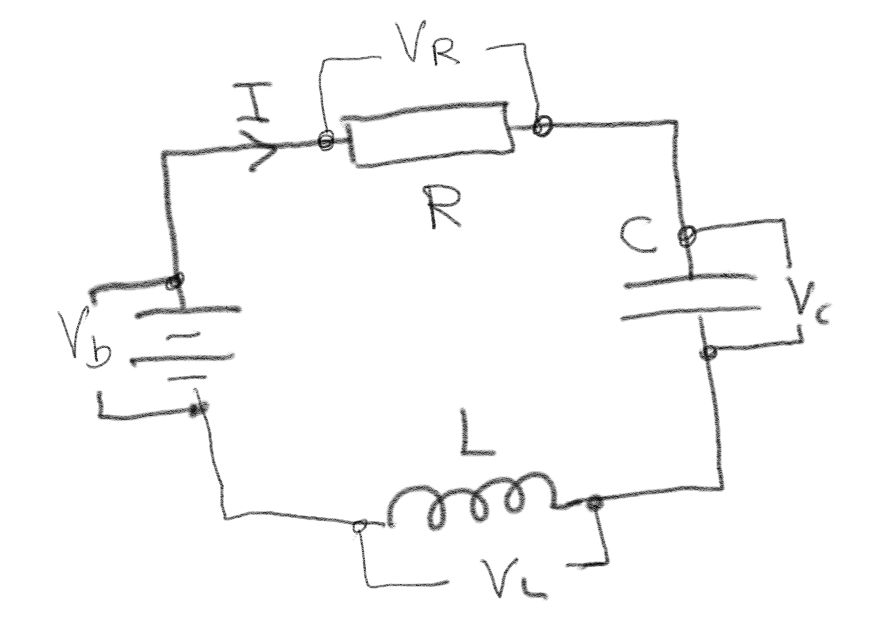 V_R
I
R
C
V_c
V_b
L
V_L